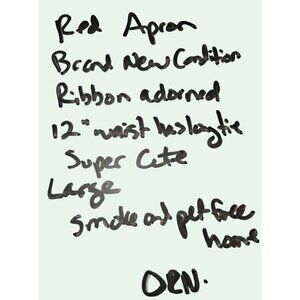 Red Apron
Brand New Condition
Ribbon adorned
12" waist has long tie
Super Cute
Large
Smoke and pet free
home
ORN.